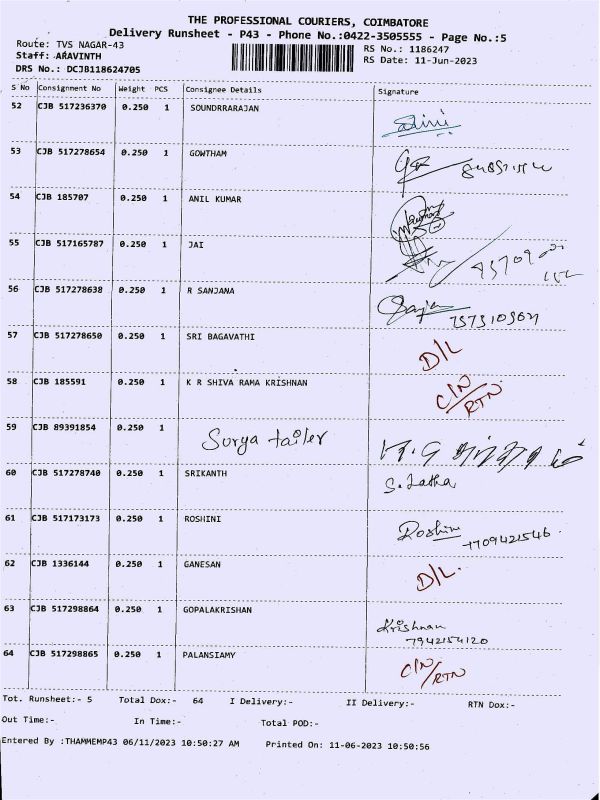 THE PROFESSIONAL COURIERS, COIMBATORE
Delivery Runsheet - P43 - Phone No.:0422-3505555 - Page No.:5
Route: TVS NAGAR-43 RS No.: 1186247
Staff: ARAVINTH RS Date: 11-Jun-2023
DRS No.: DCJB118624705
S No Consignment No Weight PCS Consignee Details Signature
52 CJB 517236370 0.250 1 SOUNDRRARAJAN
53 CJB 517278654 0.250 1 GOWTHAM
54 CJB 185707 0.250 1 ANIL KUMAR
55 CJB 517165787 0.250 1 JAI
56 CJB 517278638 0.250 1 R SANJANA Sanjana
57 CJB 517278650 0.250 1 SRI BAGAVATHI D/L
58 CJB 185591 0.250 1 K R SHIVA RAMA KRISHNAN C/N/RTN
59 CJB 89391854 0.250 1 Surya tailer
60 CJB 517278740 0.250 1 SRIKANTH S. Latha
61 CJB 517173173 0.250 1 ROSHINI Roshini 7709421546
62 CJB 1336144 0.250 1 GANESAN D/L.
63 CJB 517298864 0.250 1 GOPALAKRISHAN Krishnan
7942154120
64 CJB 517298865 0.250 1 PALANSIAMY C/N/RTN
Tot. Runsheet:- 5 Total Dox:- 64 I Delivery:- II Delivery:- RTN Dox:-
Out Time:- In Time:- Total POD:-
Entered By :THAMMEMP43 06/11/2023 10:50:27 AM Printed On: 11-06-2023 10:50:56